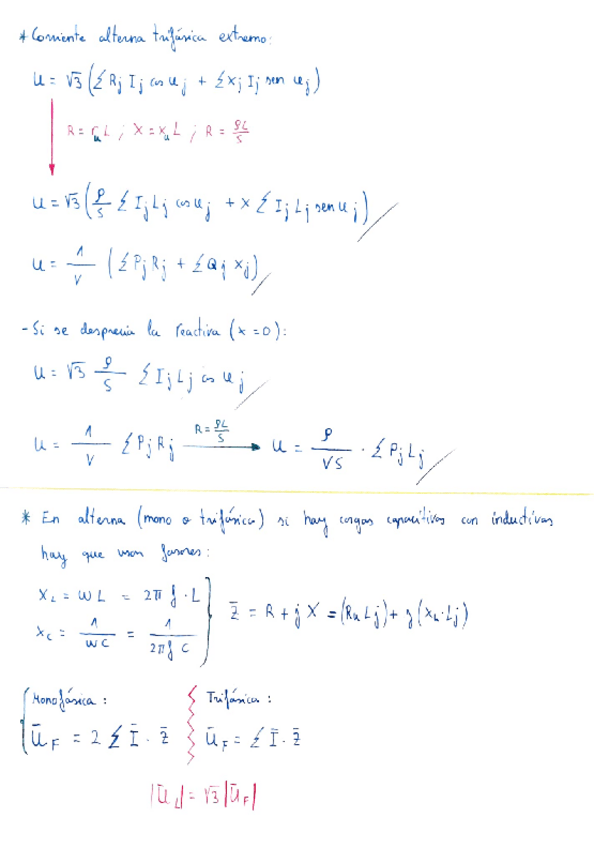 * Corriente alterna trifásica extremo:
u = √3 (∑ Rj Ij cos φj + ∑ Xj Ij sen φj)
R = ru L ; X = xu L ; R = ρL/S
u = √3 (ρ/S ∑ Ij Lj cos φj + x ∑ Ij Lj sen φj)
u = 1/V (∑ Pj Rj + ∑ Qj Xj)
- Si se desprecia la reactiva (x = 0):
u = √3 ρ/S ∑ Ij Lj cos φj
u = 1/V ∑ Pj Rj R = ρL/S → u = ρ/VS · ∑ Pj Lj
* En alterna (mono o trifásica) si hay cargas capacitivas con inductivas
hay que usar fasores:
XL = ωL = 2π f · L
Xc = 1/ωC = 1/2πf C } Z̄ = R + j X = (Ru Lj) + j (xu · Lj)
Monofásica : Trifásica :
ŪF = 2 ∑ Ī · Z̄ ŪF = ∑ Ī · Z̄
|ŪL| = √3 |ŪF|